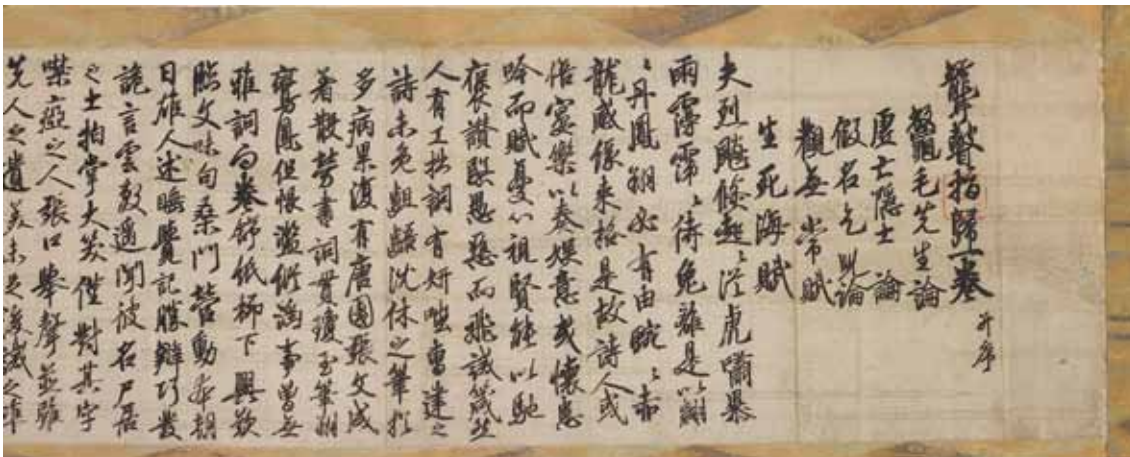 聾瞽指歸一巻 并序
鼈毛先生論
虛亡隱士論
假名乞児論
觀無常賦
生死海賦
夫烈飈倏起〻從虎嘯暴
雨霶霈〻待兔離是以翩
〻丹鳳翔必有由蜿〻赤
龍感緣来格是故詩人或
悟宴樂以奏娯意或懷患
吟而賦憂心祖賢能以馳
褒讃慇愚惡而飛誡箴然
人有工拙詞有妍嗤曹建之
詩未免齟齬沈休之筆猶
多病累復有唐國張文成
著散勞書詞貫瓊玉筆翔
鸞鳳但恨濫縱淫事曽無
雅詞面卷舒紙柳下興歎
臨文味句桑門營動本朝
日雄人述睡覺記勝辯巧發
詭言雲敷遥聞彼名尸居
之士拍掌大笑僅對其字
噤瘂之人張口舉聲並雖
先人之遺美未足後誡之准